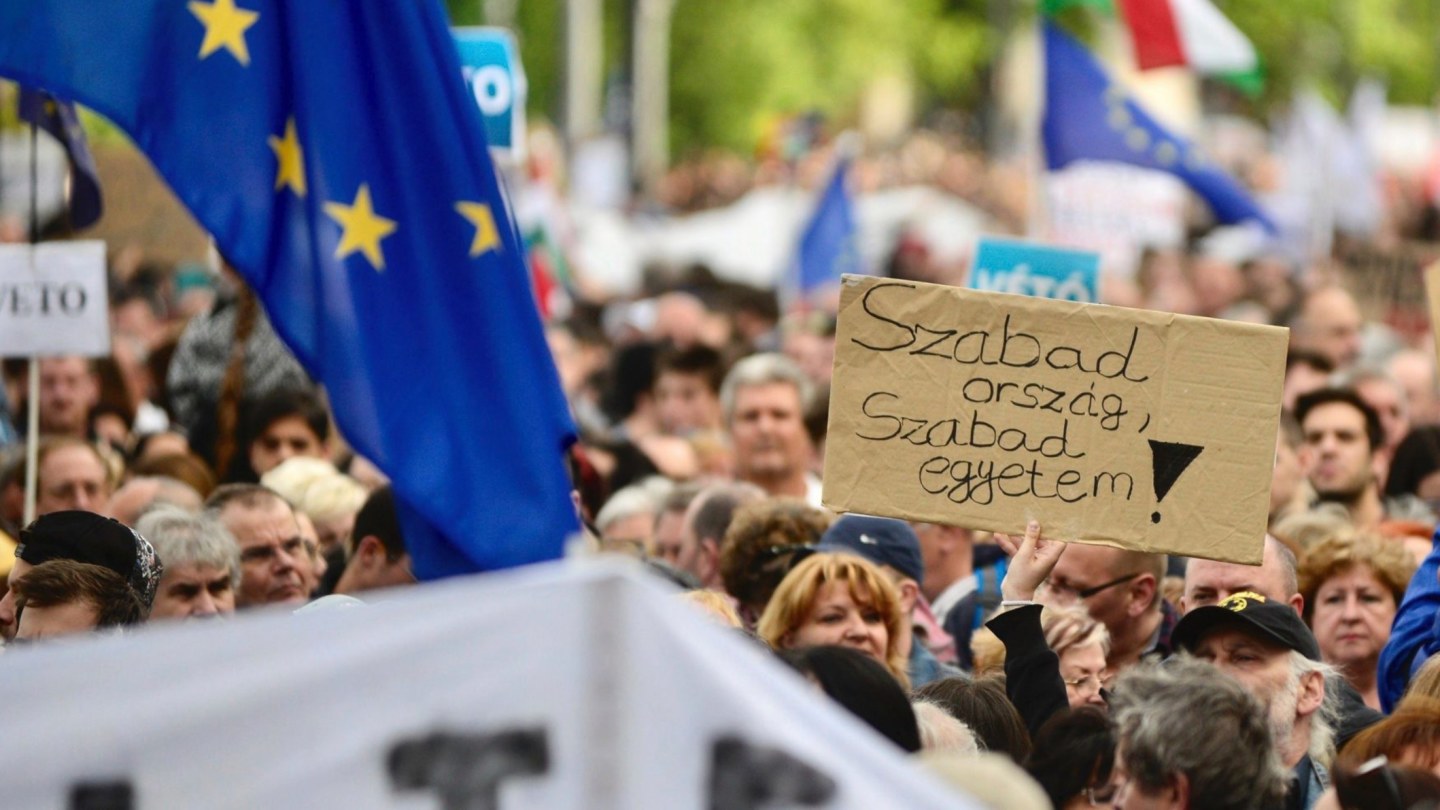 VETO
Szabad
ország,
Szabad
egyetem!
VÉTÓ